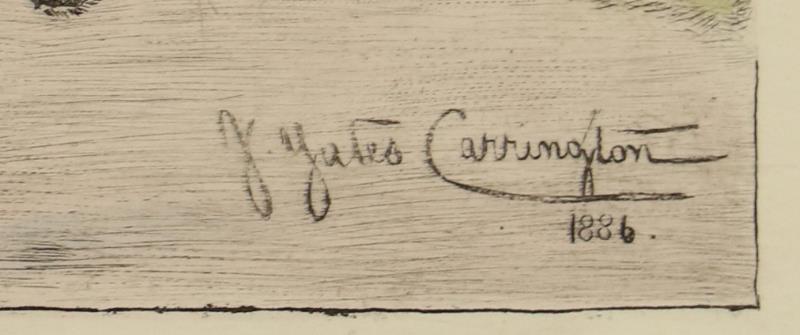 J. Yates Carrington
1886.